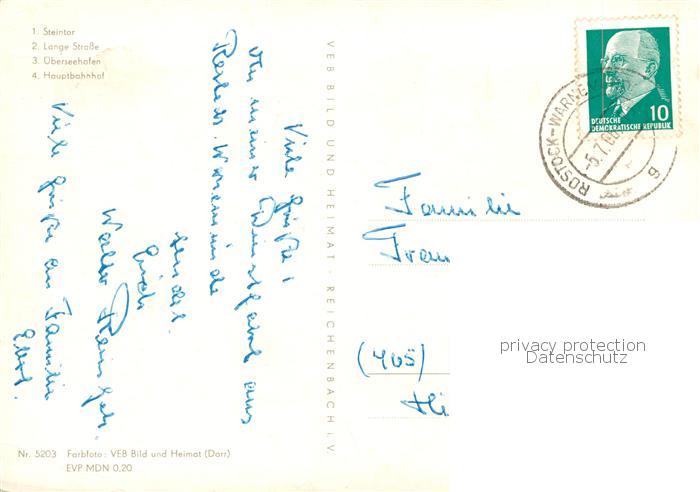 1. Steintor
2. Lange Straße
3. Überseehafen
4. Hauptbahnhof
VEB BILD UND HEIMAT · REICHENBACH i. V.
Viele Grüße,
von meiner Dienstfahrt aus
Rostock. Warnemünde
sendet
Euch
Walter
Viele Grüße an Familie
Nr. 5203 Farbfoto: VEB Bild und Heimat (Darr)
EVP MDN 0,20
10
DEUTSCHE
DEMOKRATISCHE REPUBLIK
ROSTOCK-WARNEM
-5.7.66
g
Familie
Fran
(405)
privacy protection
Datenschutz